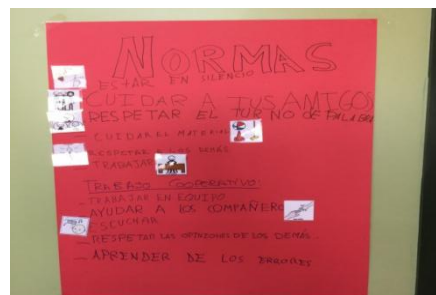 NORMAS
ESTAR EN SILENCIO
CUIDAR A TUS AMIGOS
RESPETAR EL TURNO DE PALABRA
- CUIDAR EL MATERIAL
RESPETAR A LOS DEMÁS
- TRABAJAR
TRABAJO COOPERATIVO:
- TRABAJAR EN EQUIPO
- AYUDAR A LOS COMPAÑERO
ESCUCHAR
- RESPETAR LAS OPINIONES DE LOS DEMÁS.
- APRENDER DE LOS ERRORES